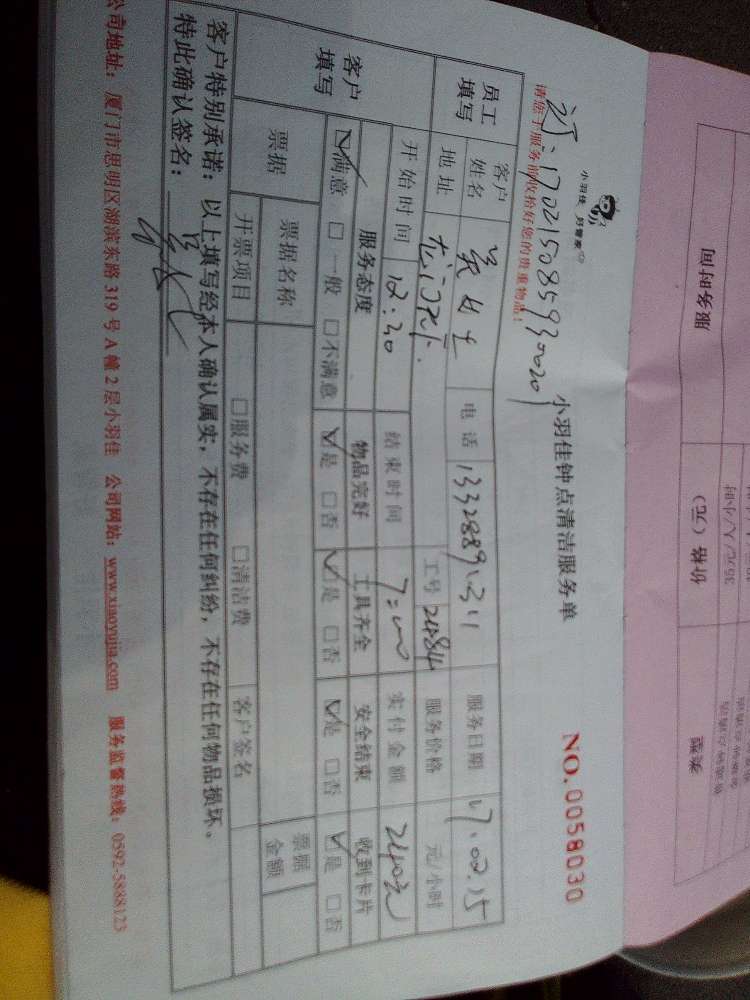 小羽佳 好管家
1702150859300201
请您于服务前收拾好您的贵重物品!
小羽佳钟点清洁服务单
NO.0058030
员工填写 客户姓名 吴女士 电话 13328891311 服务日期 17.02.15
地址 工号 2484 服务价格 元/小时
开始时间 12:30 结束时间 7:00 实付金额 240元
客户填写 服务态度 物品完好 工具齐全 安全结束 收到卡片
☑满意 □一般 □不满意 ☑是 □否 ☑是 □否 ☑是 □否 ☑是 □否
票据 票据名称 票据金额
开票项目 □服务费 □清洁费 客户签名
客户特别承诺:以上填写经本人确认属实,不存在任何纠纷,不存在任何物品损坏。
特此确认签名:
公司地址:厦门市思明区湖滨东路319号A幢2层小羽佳 公司网站:www.xiaoyujia.com 服务监督热线:0592-5888123
服务时间 价格(元) 备注
35元/人/小时